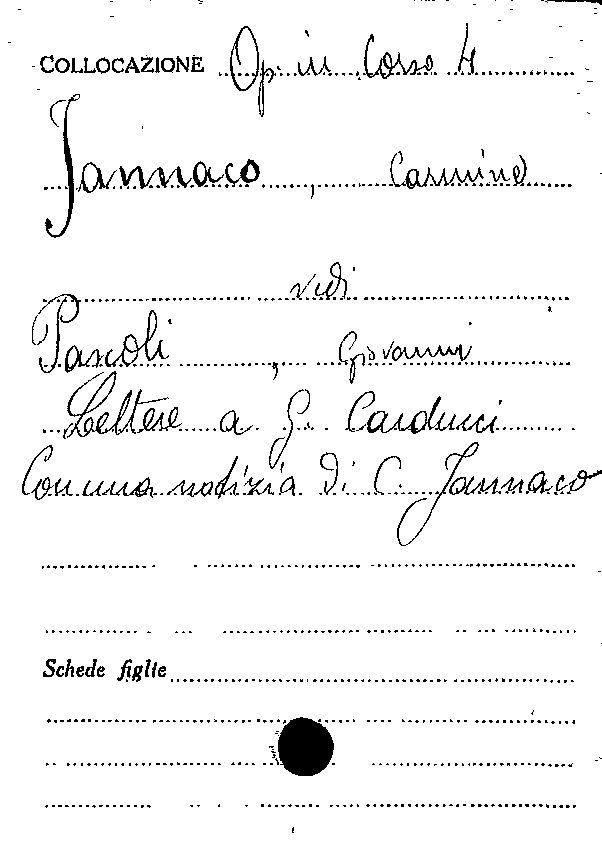 COLLOCAZIONE Op. in Corso 4
Jannaco, Carmine
vedi
Pascoli, Giovanni
Lettere a G. Carducci
Con una notizia di C. Jannaco
Schede figlie